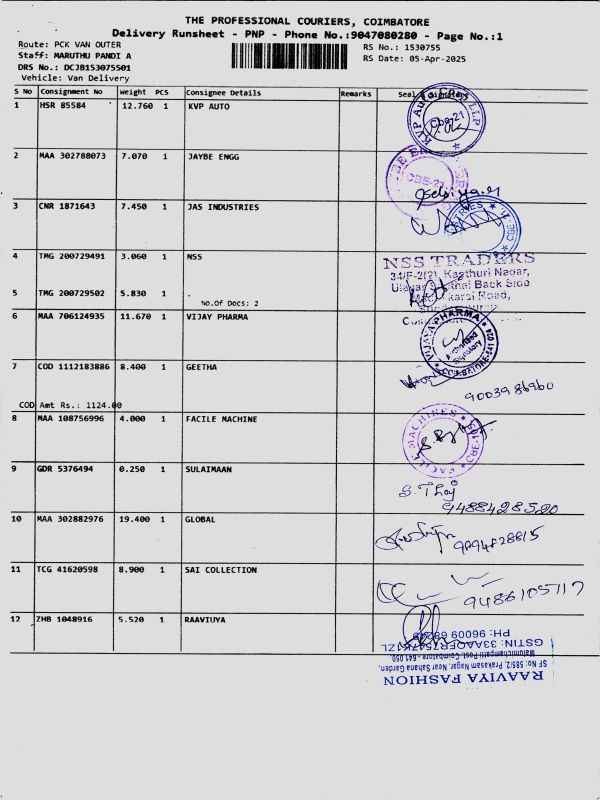 THE PROFESSIONAL COURIERS, COIMBATORE
Delivery Runsheet - PNP - Phone No.:9047080280 - Page No.:1
Route: PCK VAN OUTER
RS No.: 1530755
Staff: MARUTHU PANDI A
RS Date: 05-Apr-2025
DRS No.: DCJB153075501
Vehicle: Van Delivery
S No Consignment No Weight PCS Consignee Details Remarks Seal
1 HSR 85584 12.760 1 KVP AUTO
KVP Auto LLP CBE-21
2 MAA 302788073 7.070 1 JAYBE ENGG
CBE-21
3 CNR 1871643 7.450 1 JAS INDUSTRIES
4 TMG 200729491 3.060 1 NSS
NSS TRADERS
34/F-2(2), Kasthuri Nagar,
Back Side
Road,
5 TMG 200729502 5.830 1
No.Of Docs: 2
6 MAA 706124935 11.670 1 VIJAY PHARMA
VIJAYA PHARMA
Authorised
Signatory
COIMBATORE-641 024
7 COD 1112183886 8.400 1 GEETHA
9003986960
COD Amt Rs.: 1124.00
8 MAA 108756996 4.000 1 FACILE MACHINE
FACILE MACHINES
9 GDR 5376494 0.250 1 SULAIMAAN
9488428520
10 MAA 302882976 19.400 1 GLOBAL
9894828815
11 TCG 41620598 8.900 1 SAI COLLECTION
9486105117
12 ZHB 1048916 5.520 1 RAAVIUYA
RAAVIYA FASHION
SF No: 585/2, Prakasam Nagar, Near Sahana Garden,
Coimbatore - 641 050.